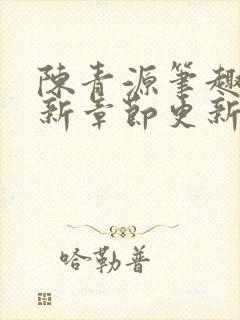 陳青源筆趣
新章節更新
哈勒普